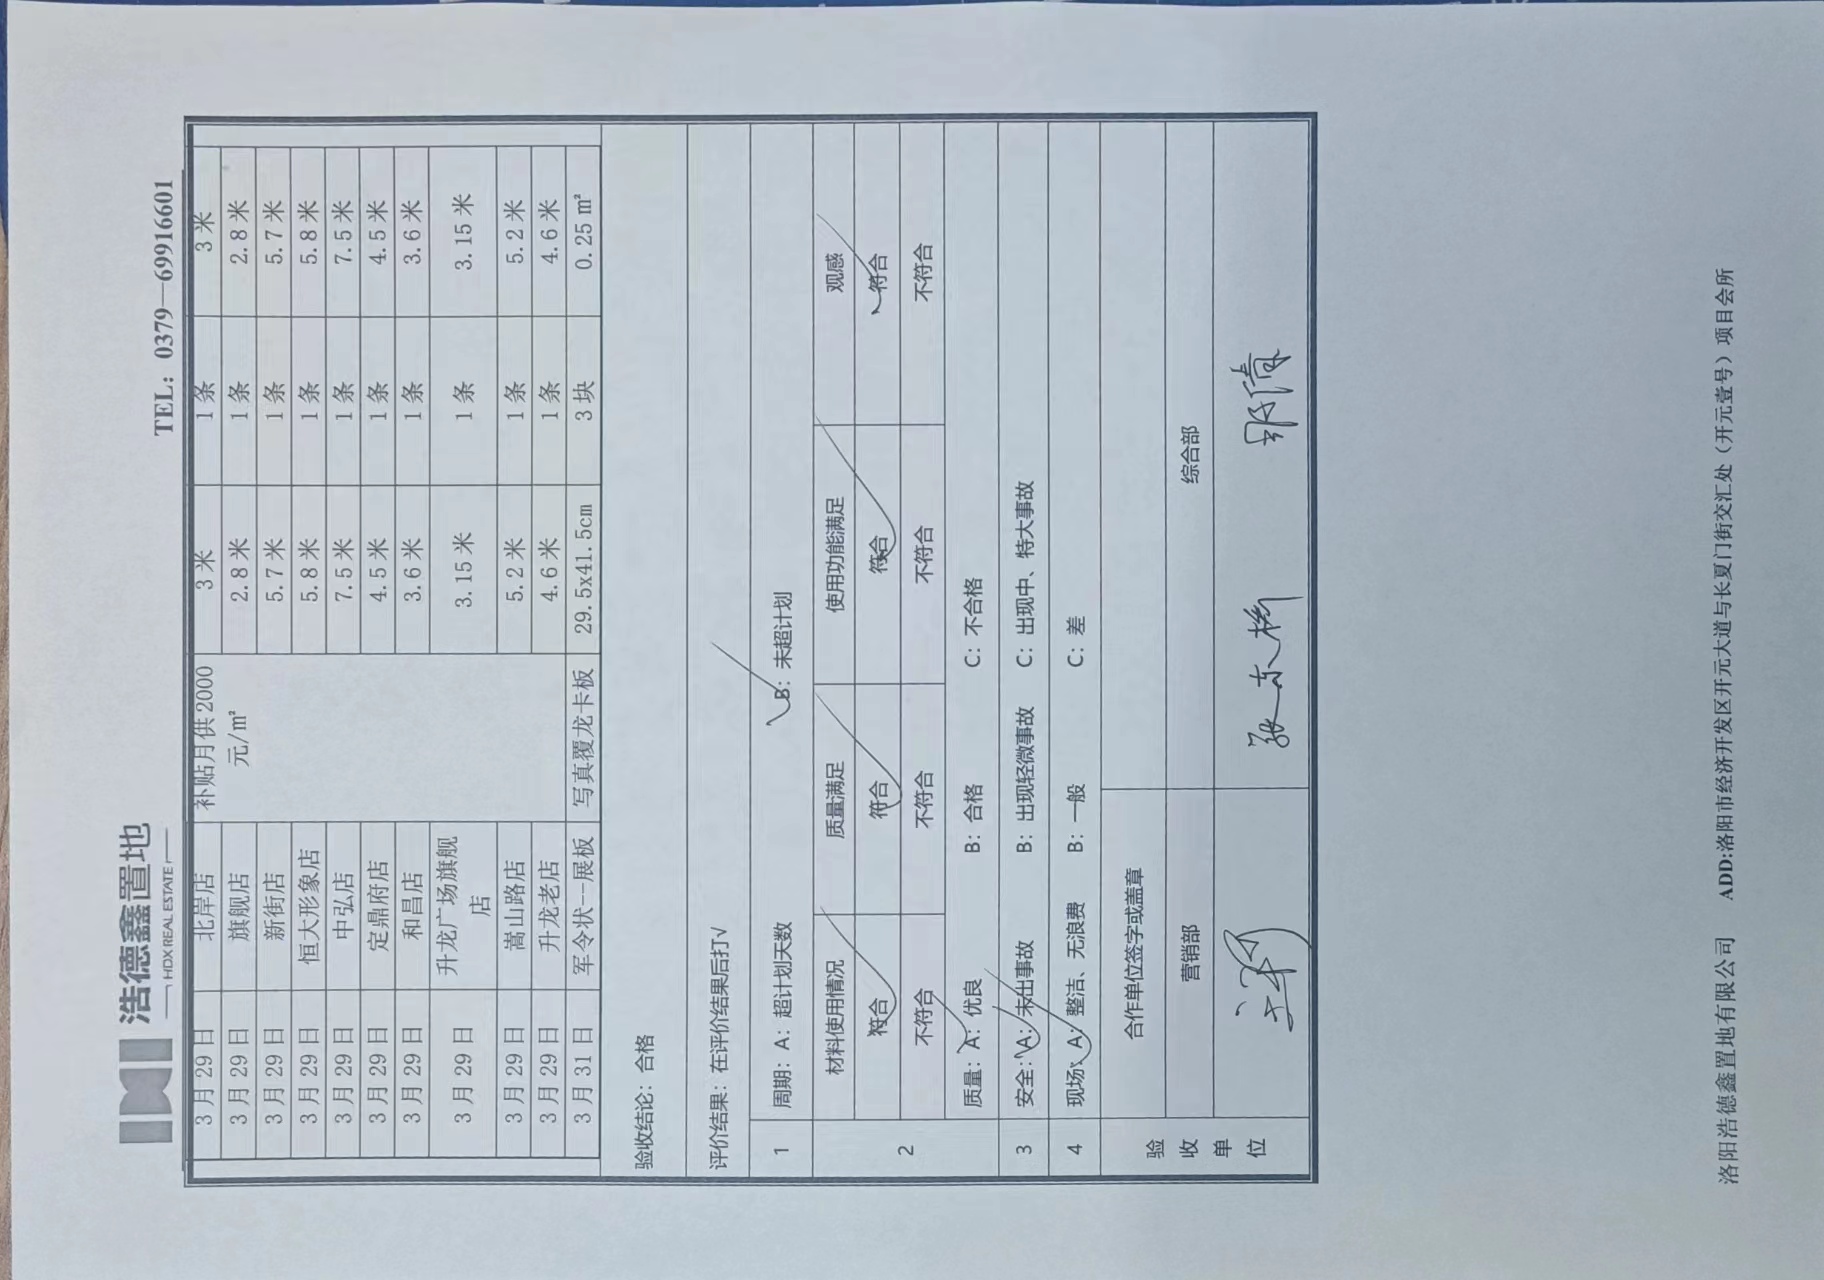 浩德鑫置地
HDX REAL ESTATE
TEL: 0379—69916601
3 月 29 日 北岸店 补贴月供2000元/㎡ 3 米 1 条 3 米
3 月 29 日 旗舰店 2.8 米 1 条 2.8 米
3 月 29 日 新街店 5.7 米 1 条 5.7 米
3 月 29 日 恒大形象店 5.8 米 1 条 5.8 米
3 月 29 日 中弘店 7.5 米 1 条 7.5 米
3 月 29 日 定鼎府店 4.5 米 1 条 4.5 米
3 月 29 日 和昌店 3.6 米 1 条 3.6 米
3 月 29 日 升龙广场旗舰店 3.15 米 1 条 3.15 米
3 月 29 日 嵩山路店 5.2 米 1 条 5.2 米
3 月 29 日 升龙老店 4.6 米 1 条 4.6 米
3 月 31 日 军令状--展板 写真覆龙卡板 29.5x41.5cm 3 块 0.25 ㎡
验收结论：合格
评价结果：在评价结果后打√
1 周期：A：超计划天数 B：未超计划
2 材料使用情况 质量满足 使用功能满足 观感
符合 符合 符合 符合
不符合 不符合 不符合 不符合
质量：A：优良 B：合格 C：不合格
3 安全：A：未出事故 B：出现轻微事故 C：出现中、特大事故
4 现场：A：整洁、无浪费 B：一般 C：差
验收单位 合作单位签字或盖章
营销部 综合部
洛阳浩德鑫置地有限公司 ADD:洛阳市经济开发区开元大道与长夏门街交汇处（开元壹号）项目会所